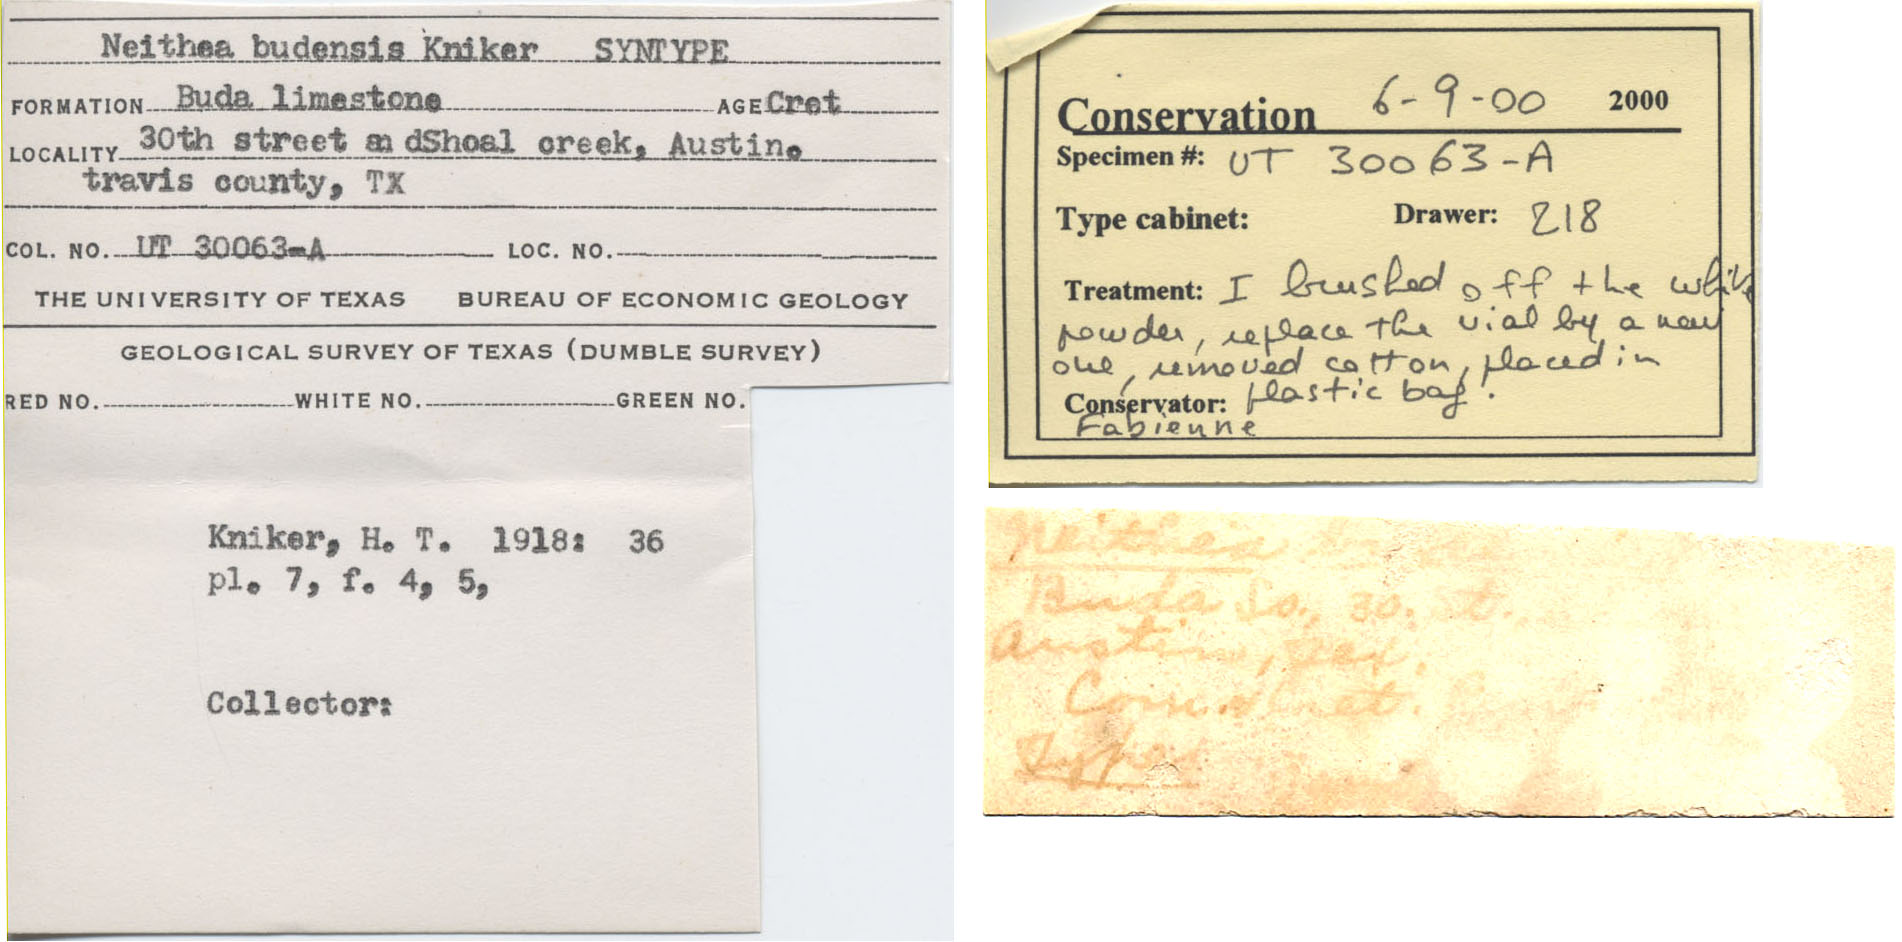 Neithea budensis Kniker SYNTYPE
FORMATION Buda limestone AGE Cret
LOCALITY 30th street an dShoal creek, Austin.
travis county, TX
COL. NO. UT 30063-A LOC. NO.
THE UNIVERSITY OF TEXAS BUREAU OF ECONOMIC GEOLOGY
GEOLOGICAL SURVEY OF TEXAS (DUMBLE SURVEY)
RED NO. WHITE NO. GREEN NO.
Kniker, H. T. 1918: 36
pl. 7, f. 4, 5,
Collector:
Conservation 6-9-00 2000
Specimen #: UT 30063-A
Type cabinet: Drawer: 218
Treatment: I brushed off the white
powder, replace the vial by a new
one, removed cotton, placed in
Conservator: plastic bag.
Fabienne
Neithea
Buda So., 30. St.
Austin, Tex.